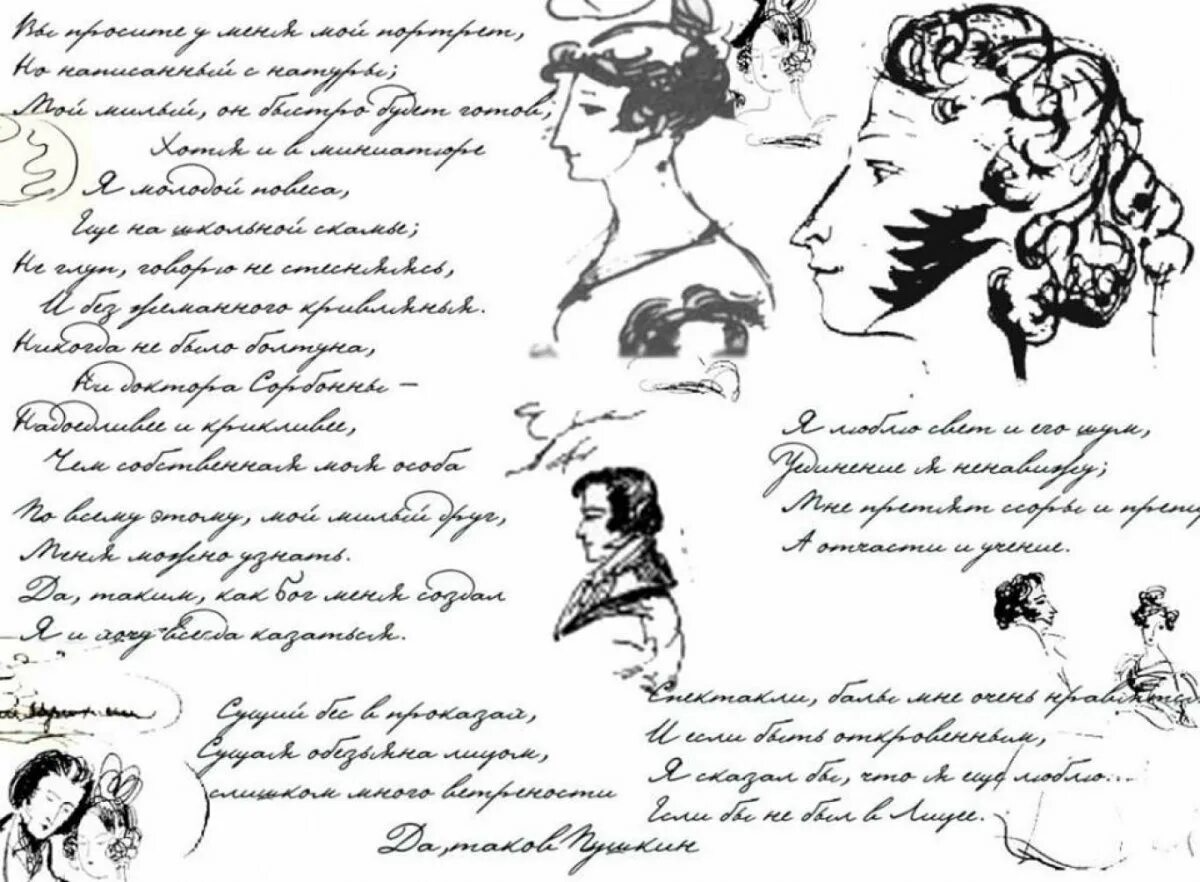 Вы просите у меня мой портрет,
Но написанный с натуры;
Мой милый, он быстро будет готов,
Хотя и в миниатюре
Я молодой повеса,
Еще на школьной скамье;
Не глуп, говорю не стесняясь,
И без жеманного кривлянья.
Никогда не было болтуна,
Ни доктора Сорбонны —
Надоедливее и крикливее,
Чем собственная моя особа
По всему этому, мой милый друг,
Меня можно узнать.
Да, таким, как Бог меня создал
Я и хочу всегда казаться.
Сущий бес в проказах,
Сущая обезьяна лицом,
слишком много ветрености
Да, таков Пушкин
Я люблю свет и его шум,
Уединение я ненавижу;
Мне претят ссоры и
А отчасти и учение.
Спектакли, балы мне очень нравятся
И если быть откровенным,
Я сказал бы, что я еще люблю...
Если бы не был в Лицее.